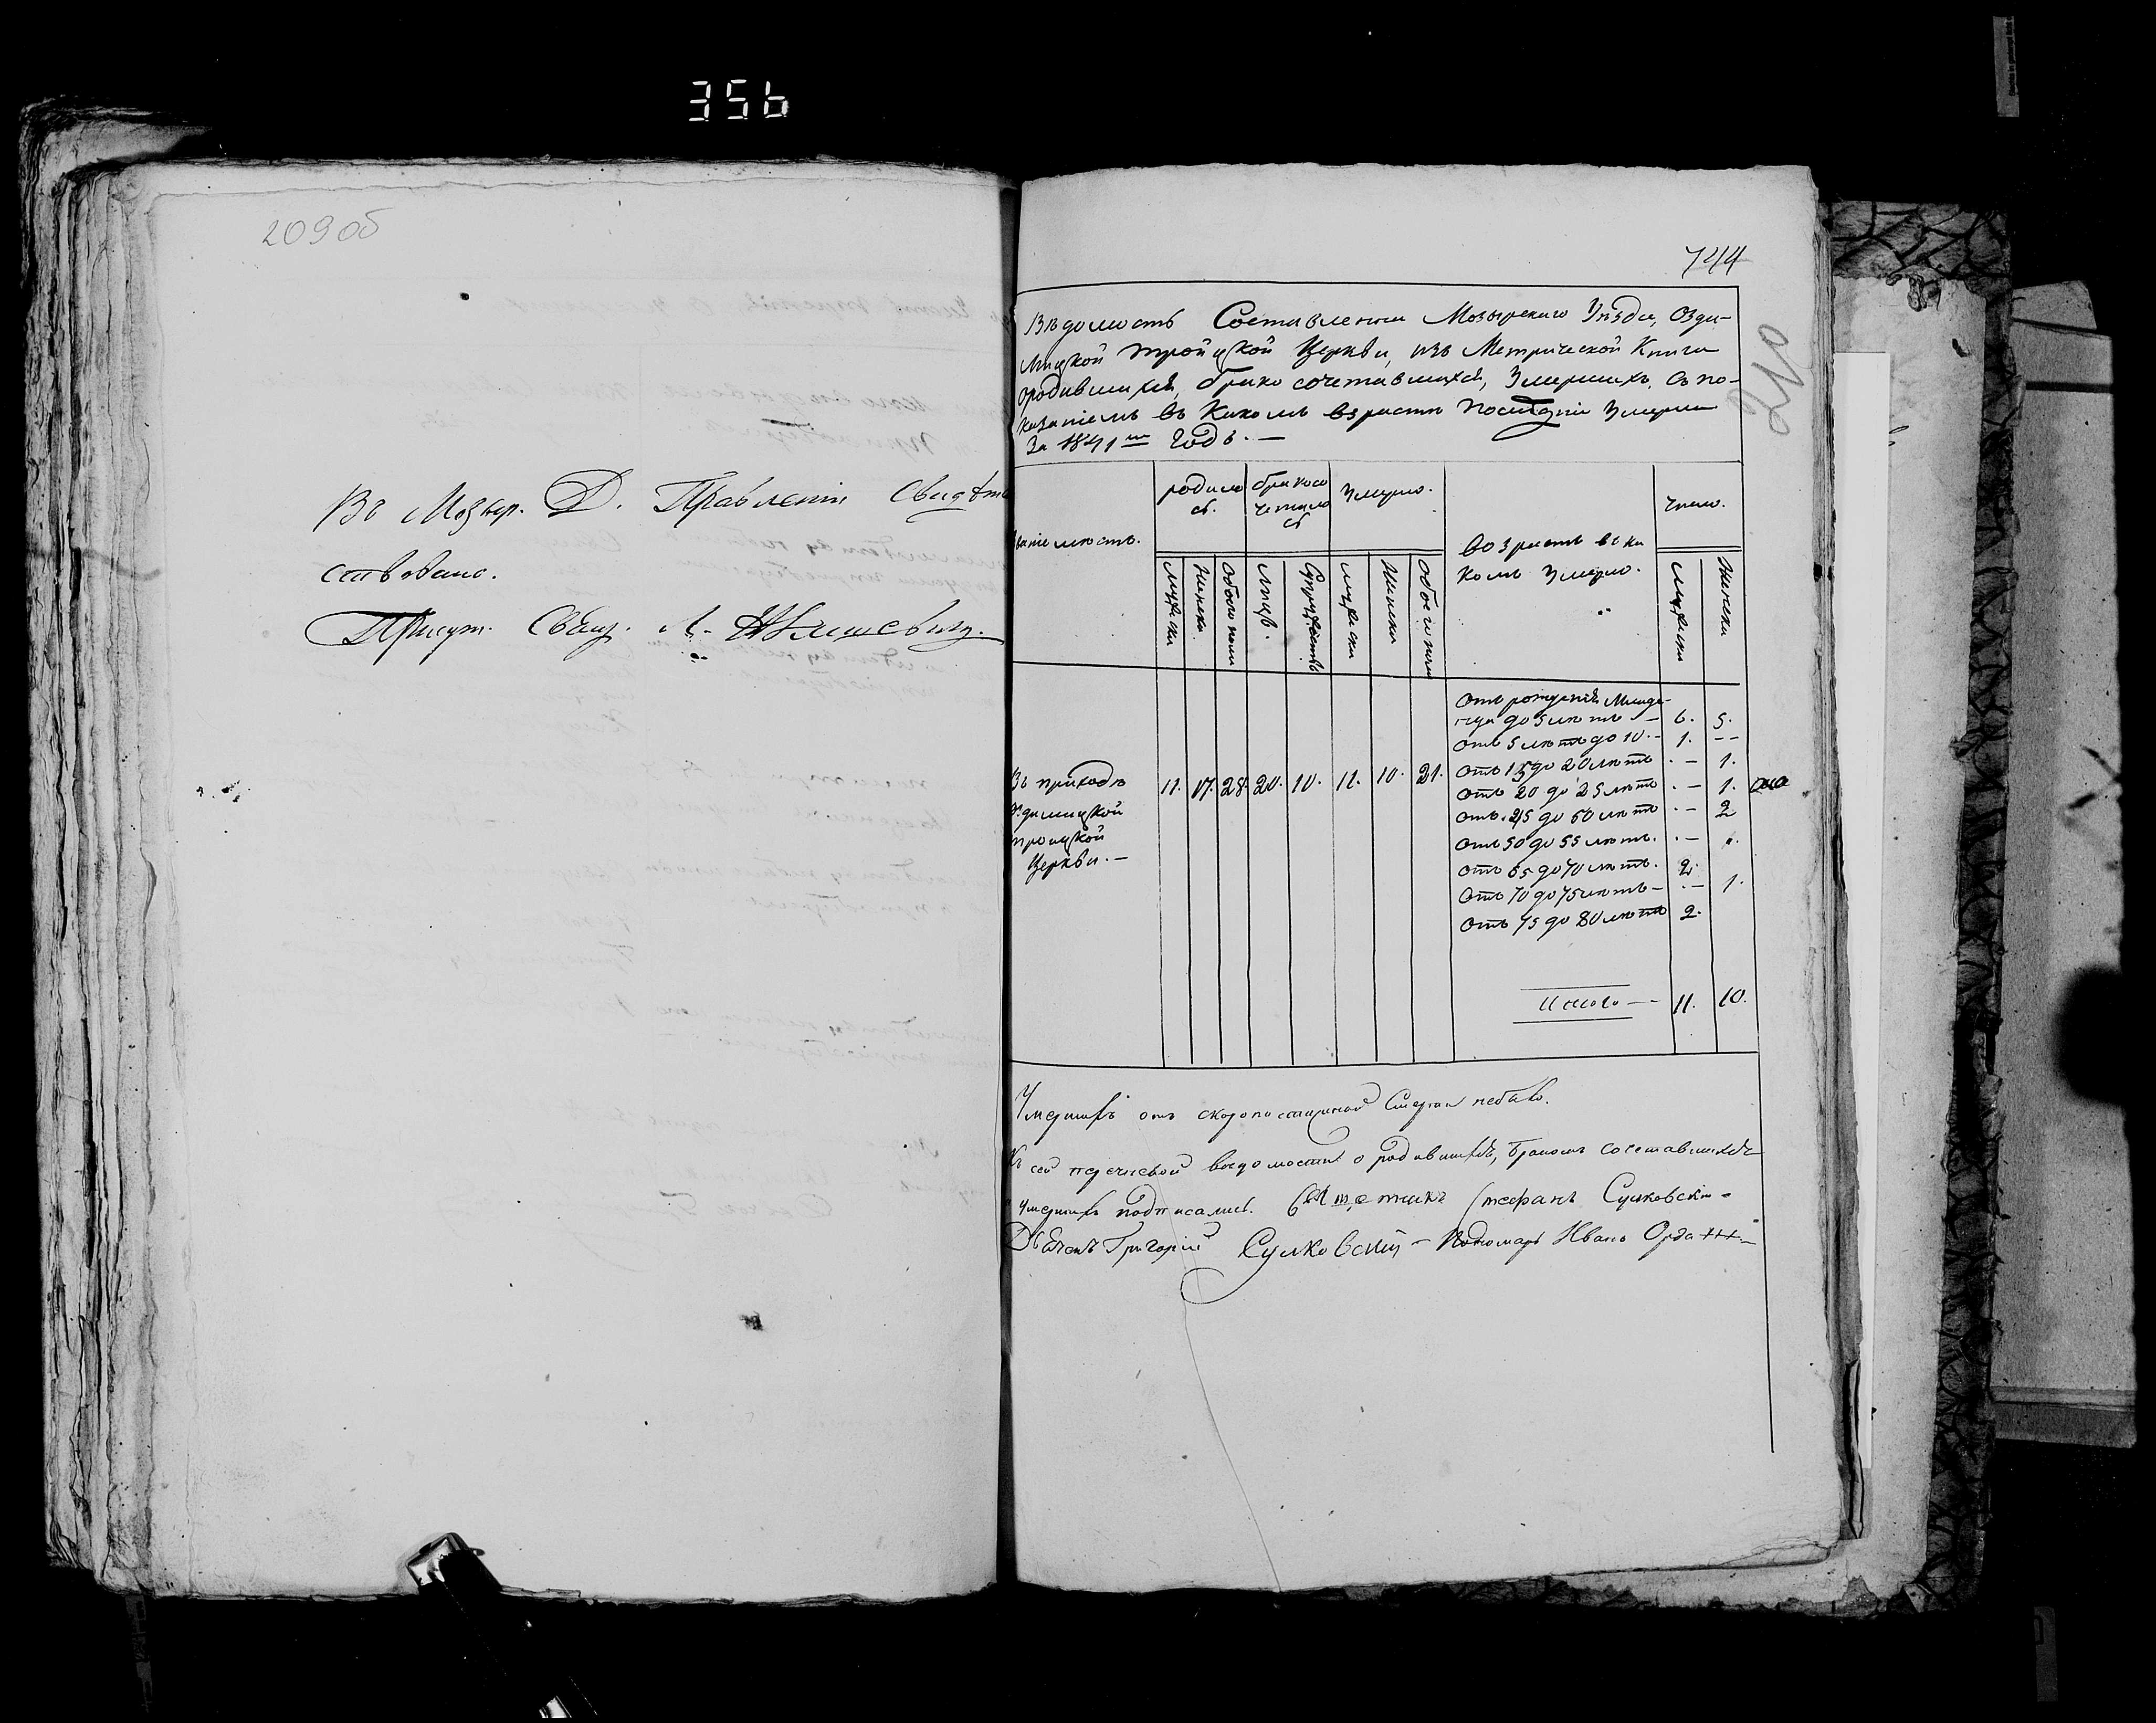 356
209об
Въ Мозыр. Д. Правленіи Свидѣте
ствовано.
Присут. Свящ. Л.
744
210
Вѣдомость Составленна Мозырскаго Уѣзда, Озда-
мицкой Тройцкой Церкви, изъ Метрической Книги
ородившихся, брако сочетавшихся, Умершихъ, съ по-
казаніемъ въ какомъ возрастѣ послѣдніи Умерли
За 1841й Годъ. —
Званіе мѣстъ.
родило
сь.
бракосо
четало
сь
Умерло.
возрастъ въ ка
комъ Умерло.
Число.
Мужска
Женска
Обоего пола
Лицъ.
Супружествъ
Мужеска
Женска
Обоего пола
Мужеска
Женска
Въ приходѣ
Оздамицкой
Тройцкой
Церкви. —
11. 17. 28. 20. 10. 11. 10. 21.
Отъ рожденія Младе-
нца до 5 лѣтъ — 6. 5.
Отъ 5 лѣтъ до 10 — 1. --
Отъ 15 до 20 лѣтъ . — 1.
Отъ 20 до 25 лѣтъ . — 1.
Отъ 25 до 60 лѣтъ . — 2
Отъ 50 до 55 лѣтъ. . —
Отъ 65 до 70 лѣтъ. 2.
Отъ 70 до 75 лѣтъ — . — 1.
Отъ 75 до 80 лѣтъ 2.
Итого — 11. 10.
Умершихъ отъ скоропостижной Смерти небыло.
Къ сей перечневой вѣдомости о родившихся, бракомъ сочетавшихся
Умершихъ подписались. Священникъ Стефанъ Сулковски-
Дьячекъ Григорій Сулковскій — Пономарь Иванъ Орда